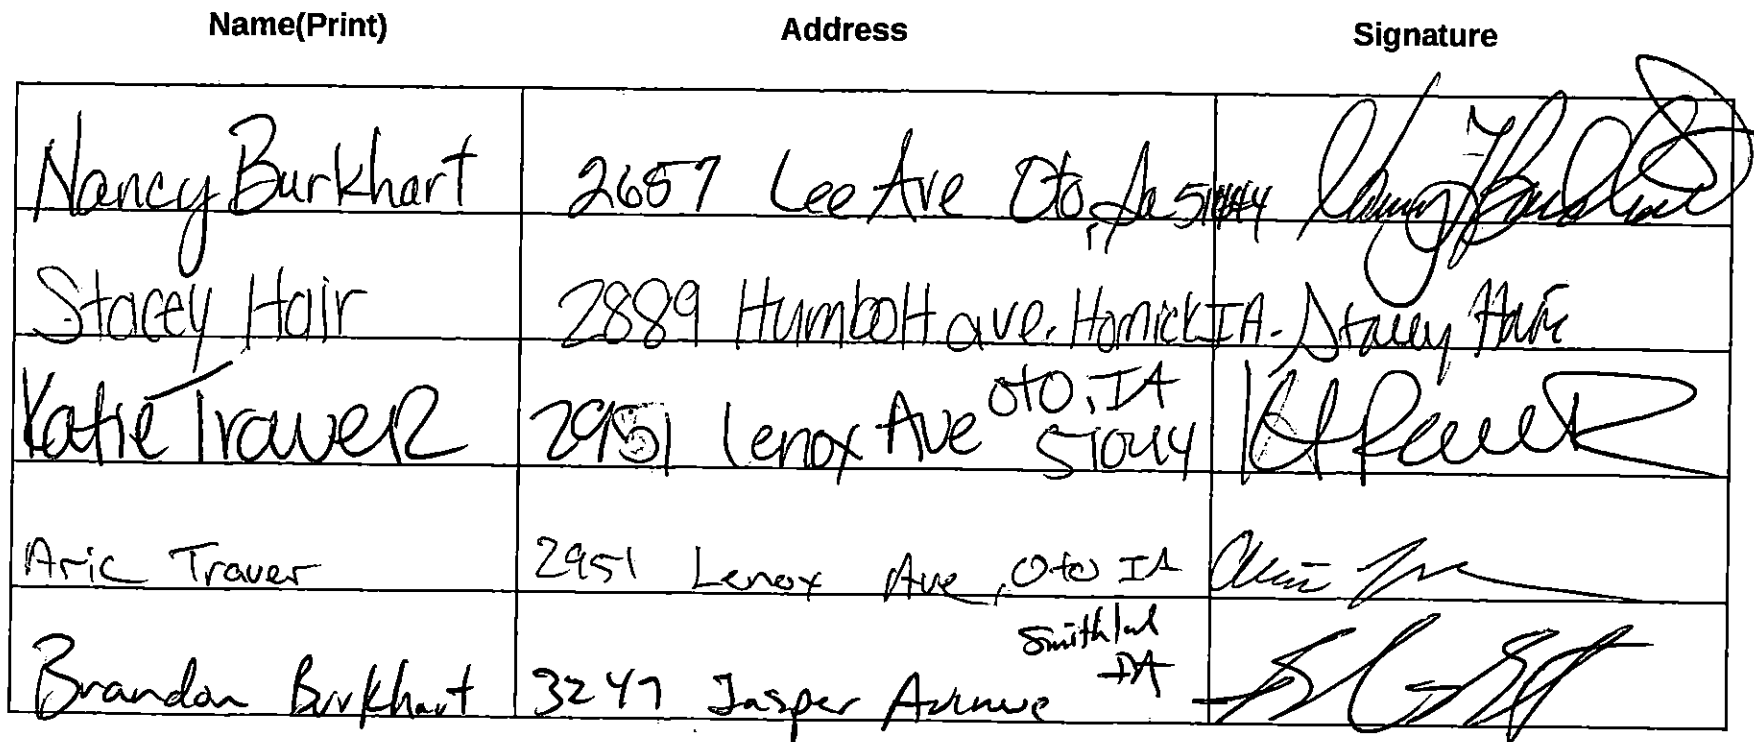 Name(Print) Address Signature
Nancy Burkhart 2657 Lee Ave Oto, Ia 51044 Nancy Burkhart
Stacey Hair 2889 Humbolt ave. Hornick IA. Stacey Hair
Katie Traver 2951 Lenox Ave Oto, IA 51044
Aric Traver 2951 Lenox Ave, Oto IA
Brandon Burkhart 3247 Jasper Avenue Smithland IA